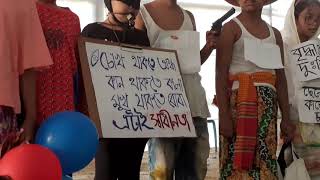 চোখ থাকতে অন্ধ
কান থাকতে কালা
মুখ থাকতে বোবা
এটাই স্বাধীনতা